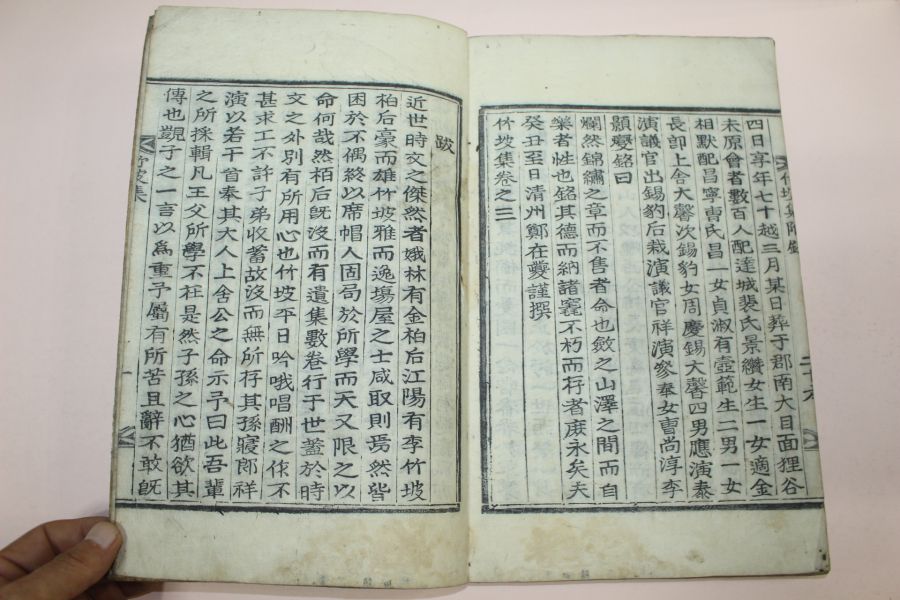 四日享年七十越三月某日葬于郡南大目面狸谷
未原會者數百人配達城裴氏景纘女生一女適金
相默配昌寧曺氏昌一女貞淑有壼範生二男一女
長卽上舍大馨次錫豹女周慶錫大馨四男應演泰
演議官出錫豹后栽演議官祥演參奉女曺尚淳李
顯璧銘曰
爛然錦繡之章而不售者命也斂之山澤之間而自
樂者性也銘其德而納諸竁不朽而存者庶永矣夫
癸丑至日淸州鄭在夔謹撰
竹坡集卷之三
跋
近世時文之傑然者娥林有金柏后江陽有李竹坡
柏后豪而雄竹坡雅而逸塲屋之士咸取則焉然皆
困於不偶終以席帽人固局於所學而天又限之以
命何哉然栢后旣沒而有遺集數卷行于世蓋於時
文之外別有所用心也竹坡平日吟哦唱酬之作不
甚求工不許子弟收蓄故沒而無所存其孫寢郎祥
演以若干首奉其大人上舍公之命示予曰此吾輩
之所採輯凡王父所學不在是然子孫之心猶欲其
傳也覬子之一言以爲重予屬有所苦且辭不敢旣
竹坡集